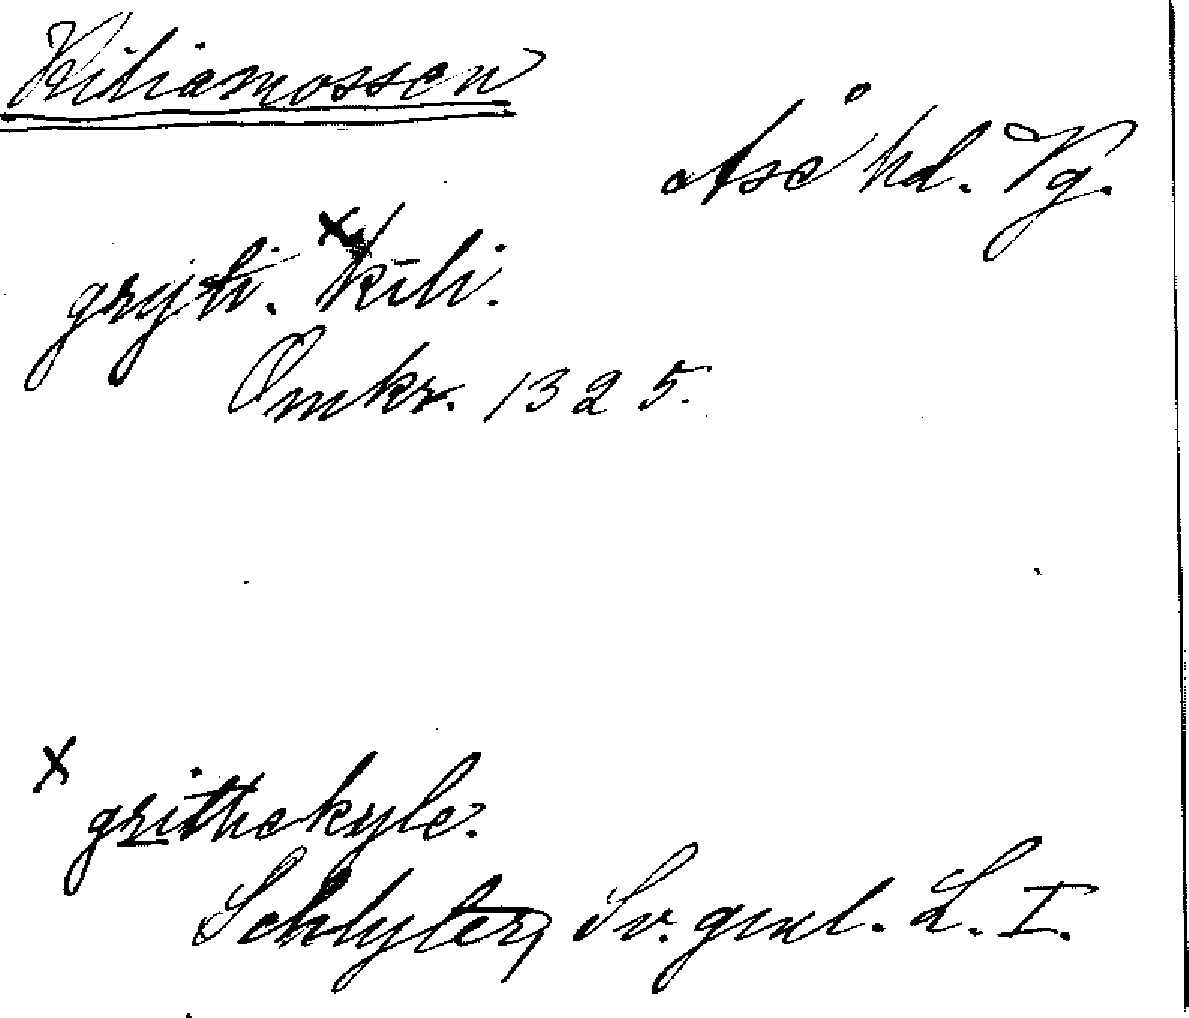 Kiliamossen
Åse hd. Vg.
gryti. ˣkili.
Omkr. 1325.
x
grithekyle.
Schlyter, Sv. gml. L. I.